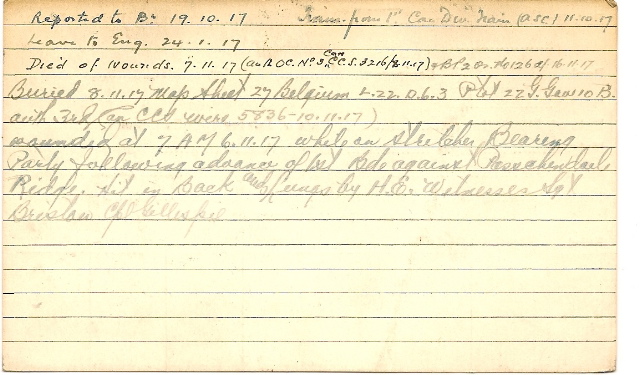 Reported to Bn 19.10.17 Trans. from 1st Can Div. Train (ASC) 11.10.17
Leave to Eng. 24.1.17
Died of Wounds. 7.11.17 (auth OC. No 3 Can C.C.S. 3216/8.11.17)
Buried 8.11.17 Map Sheet 27 Belgium L.22.D.6.3 Plot 22 G. Grave 10 B.
auth 3rd Can CCS wire 5836-10.11.17)
wounded at 7 AM 6.11.17 while on Stretcher Bearing
Party following advance of 1st Bde against Passchendaele
Ridge. Hit in Back and Lungs by H.E. Witnesses Sgt
Bristow Cpl Gillespie